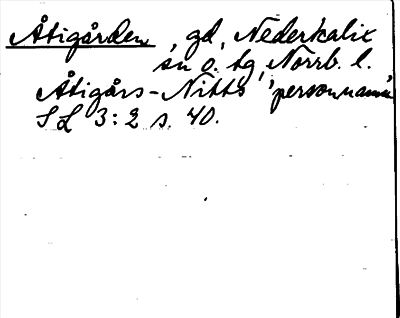 Åtigården, gd, Nederkalix
sn o. tg, Norrb. l.
Åtigårs-Nitts 'personnamn'
SL 3:2 s. 40.